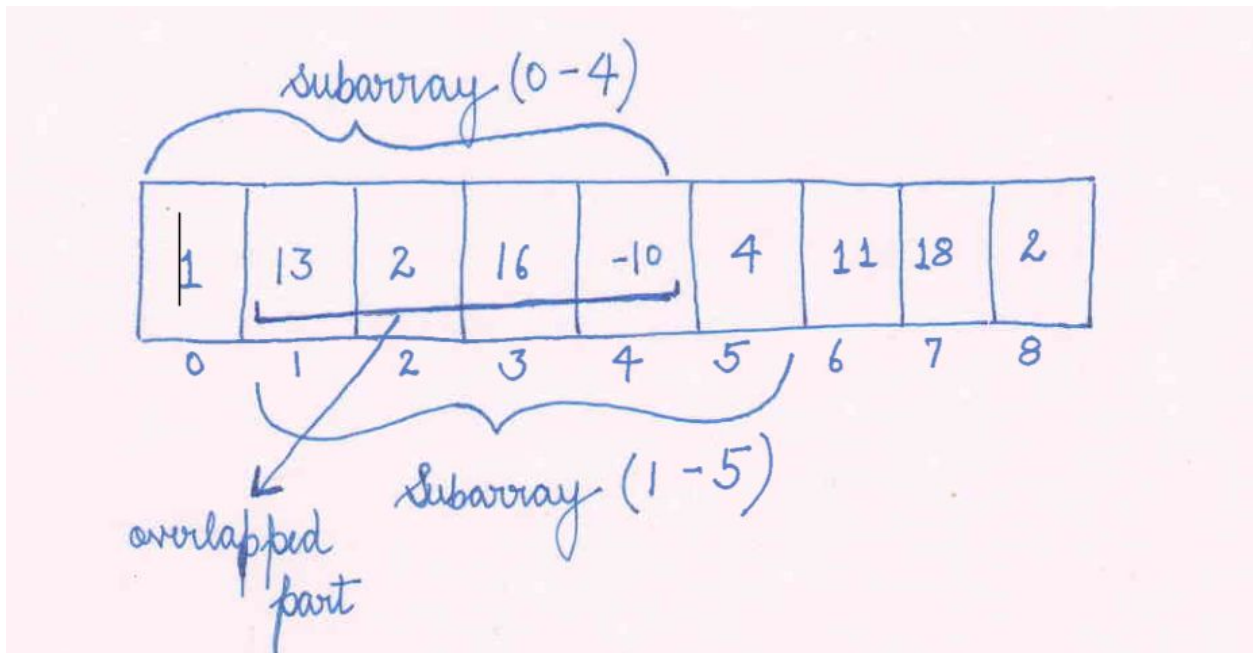 subarray (0-4)
1 13 2 16 -10 4 11 18 2
0 1 2 3 4 5 6 7 8
Subarray (1-5)
overlapped
part